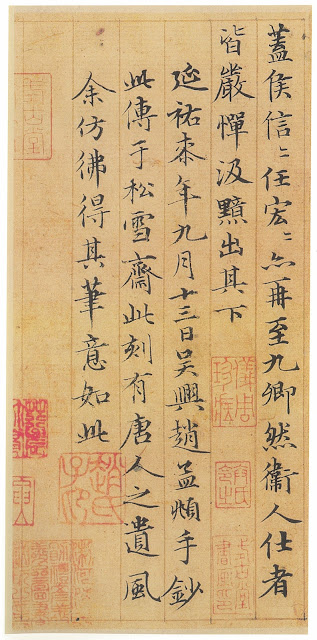 蓋侯信〻任宏〻亦再至九卿然衞人仕者
皆嚴憚汲黯出其下
延祐柒年九月十三日吳興趙孟頫手鈔
此傳于松雪齋此刻有唐人之遺風
余仿彿得其筆意如此
趙氏子昂
儀周珍藏